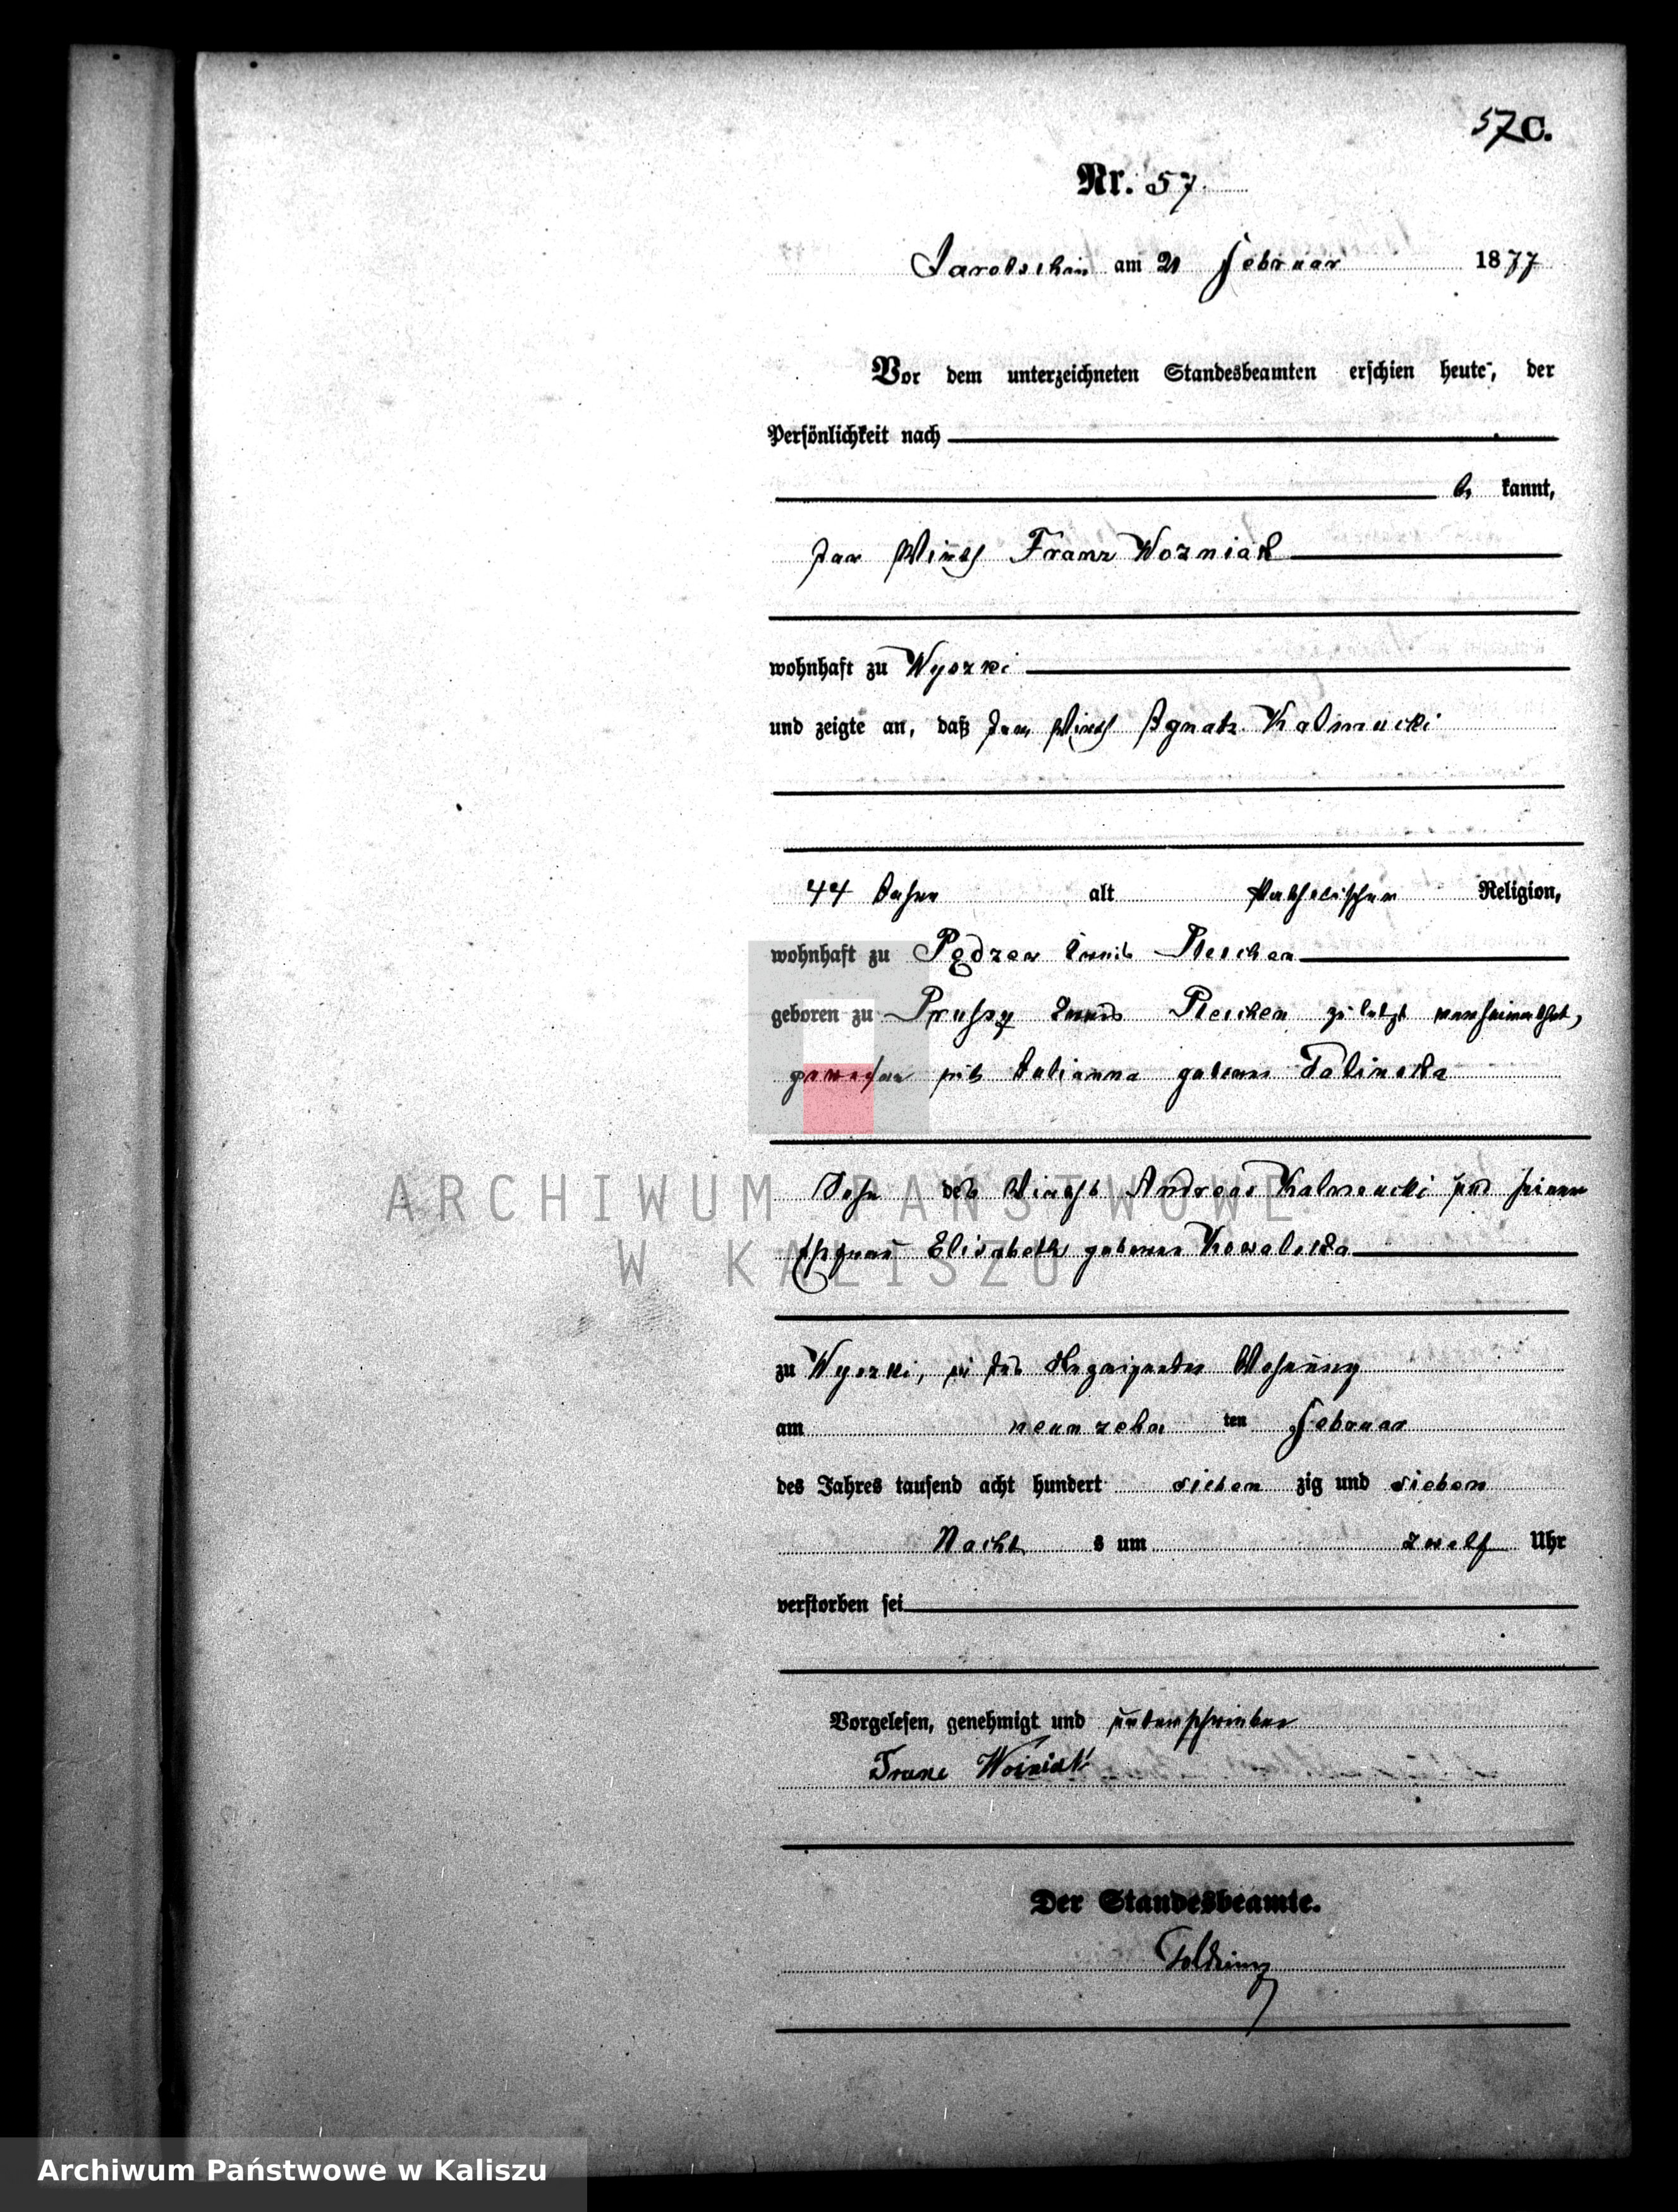 57 C.
Nr. 57.
Jarotschin am 21 Februar 1877
Vor dem unterzeichneten Standesbeamten erschien heute, der
Persönlichkeit nach
be kannt,
der Wirth Franz Wozniak
wohnhaft zu Wyszki
und zeigte an, daß der Wirth Ignatz Kalmucki
44 Jahre alt katholischer Religion,
wohnhaft zu Pędzew Kreis Pleschen
geboren zu Prussy Kreis Pleschen zuletzt verheirathet,
gewesen mit Julianna geborne
Sohn des Wirths Andreas Kalmucki und seiner
Ehefrau Elisabeth geborne Kowalska
ARCHIWUM PAŃSTWOWE
W KALISZU
zu Wyszki, in des Anzeigenden Wohnung
am neunzehn ten Februar
des Jahres tausend acht hundert sieben zig und sieben
Nacht s um zwölf Uhr
verstorben sei
Vorgelesen, genehmigt und unterschrieben
Franc Woiniak
Der Standesbeamte.
Archiwum Państwowe w Kaliszu